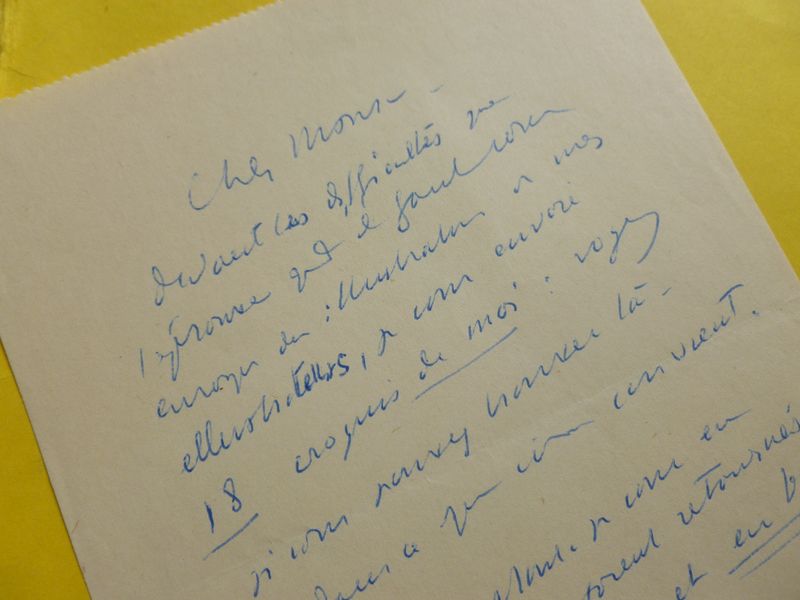 Cher Mons
devant les difficultés que
j'éprouve quand il faut vous
envoyer des illustrations de mes
illustrateurs, je vous envoie
18 croquis de moi : voyez
si vous pouvez trouver là-
dans ce qui vous convient.
je vous en
retournés
et en b